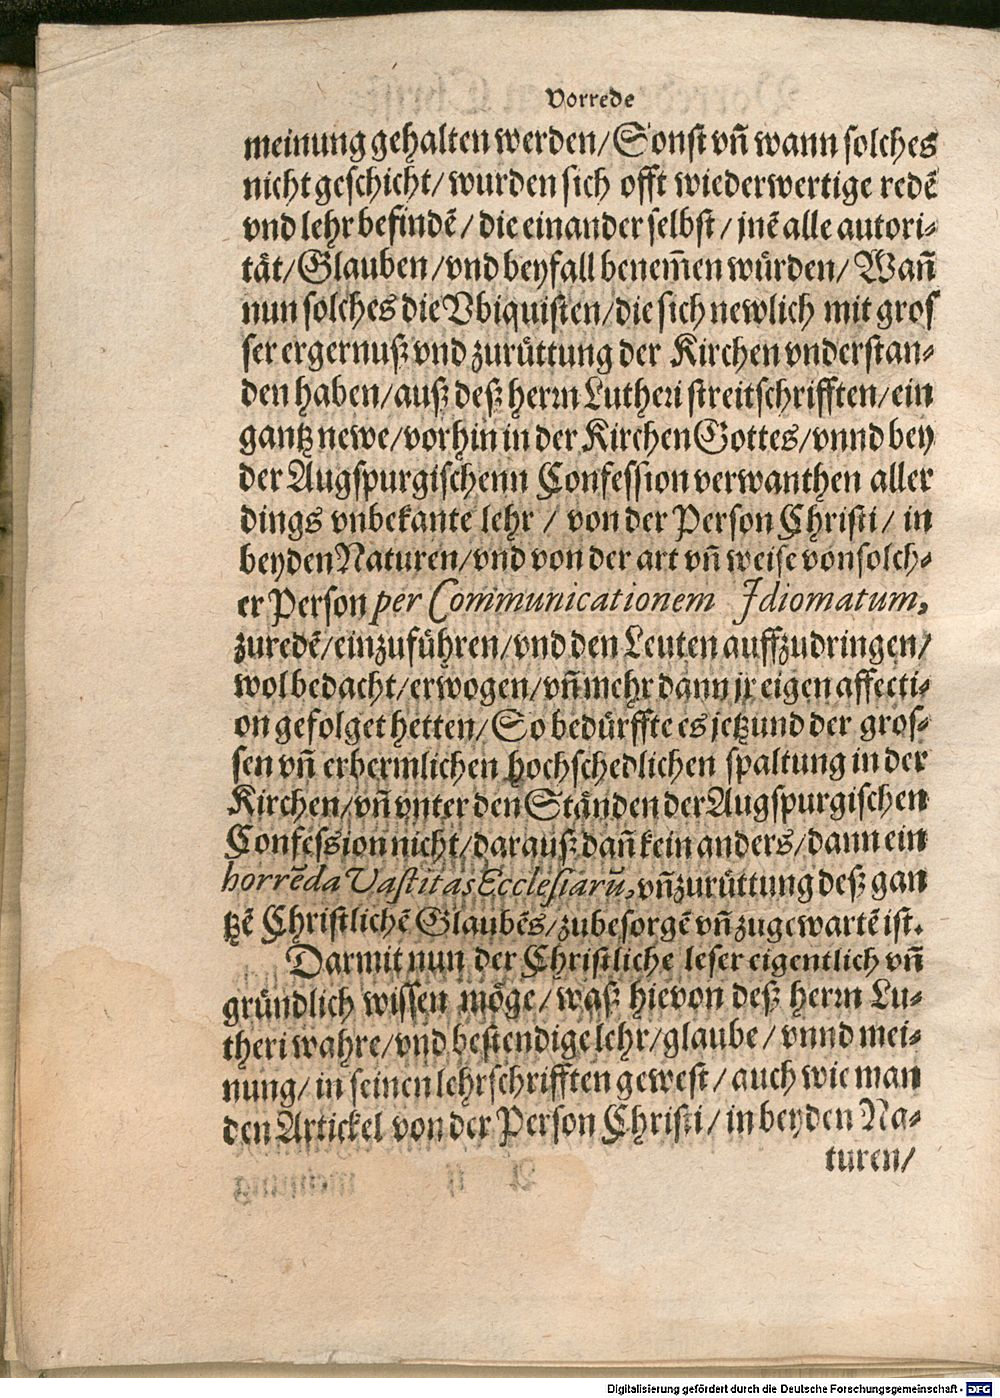 Vorrede
meinung gehalten werden/ Sonst vñ wann solches
nicht geschicht/ wurden sich offt wiederwertige redẽ
vnd lehr befindẽ/ die einander selbst/ jnẽ alle autori-
tät/ Glauben/ vnd beyfall benem̃en würden/ Wañ
nun solches die Vbiquisten/ die sich newlich mit gros
ser ergernuß vnd zurüttung der Kirchen vnderstan-
den haben/ auß deß herrn Lutheri streitschrifften/ ein
gantz newe/ vorhin in der Kirchen Gottes/ vnnd bey
der Augspurgischenn Confession verwanthen aller
dings vnbekante lehr / von der Person Christi/ in
beyden Naturen/ vnd von der art vñ weise von solch-
er Person per Communicationem Idiomatum,
zuredẽ/ einzuführen/ vnd den Leuten auffzudringen/
wol bedacht/ erwogen/ vñ mehr dann jr eigen affecti-
on gefolget hetten/ So bedürffte es jetzund der gros-
sen vñ erbermlichen hochschedlichen spaltung in der
Kirchen/ vñ vnter den Ständen der Augspurgischen
Confession nicht/ darauß dañ kein anders/ dann ein
horrẽda Vastitas Ecclesiarũ, vñ zurüttung deß gan
tzẽ Christlichẽ Glaubẽs/ zubesorgẽ vñ zugewartẽ ist.
Darmit nun der Christliche leser eigentlich vñ
gründlich wissen möge/ waß hievon deß herrn Lu-
theri wahre/ vnd bestendige lehr/ glaube/ vnnd mei-
nung/ in seinen lehrschrifften gewest/ auch wie man
den Artickel von der Person Christi/ in beyden Na-
turen/
Digitalisierung gefördert durch die Deutsche Forschungsgemeinschaft - DFG